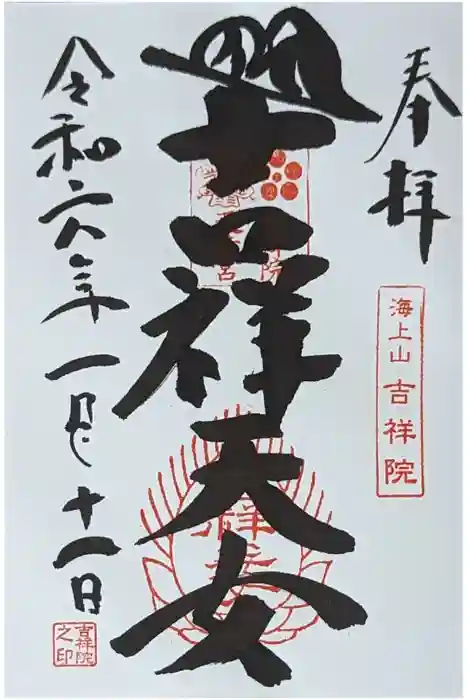 奉拝
海上山 吉祥院
吉祥天女
令和六年一月十一日
吉祥院之印